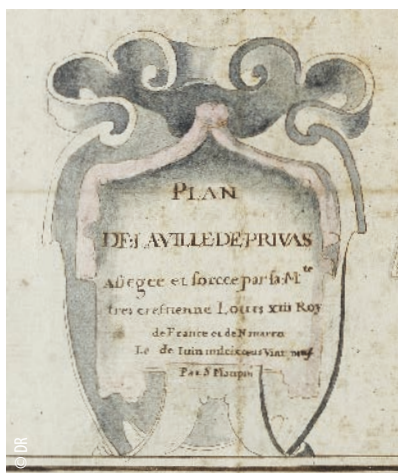 PLAN
DE LA VILLE DE PRIVAS
Assiegee et forcee par sa M.te
tres crestienne Louis xiii Roy
de France et de Navarre
Le de Iuin mil six cens Vint neuf
Par S Maupin
© DR